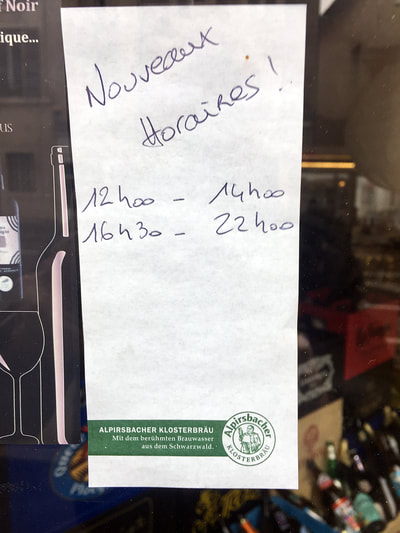 f Noir
ique...
us
Nouveaux
Horaires !
12h00 - 14h00
16h30 - 22h00
ALPIRSBACHER KLOSTERBRÄU
Mit dem berühmten Brauwasser
aus dem Schwarzwald.
Alpirsbacher
KLOSTERBRÄU